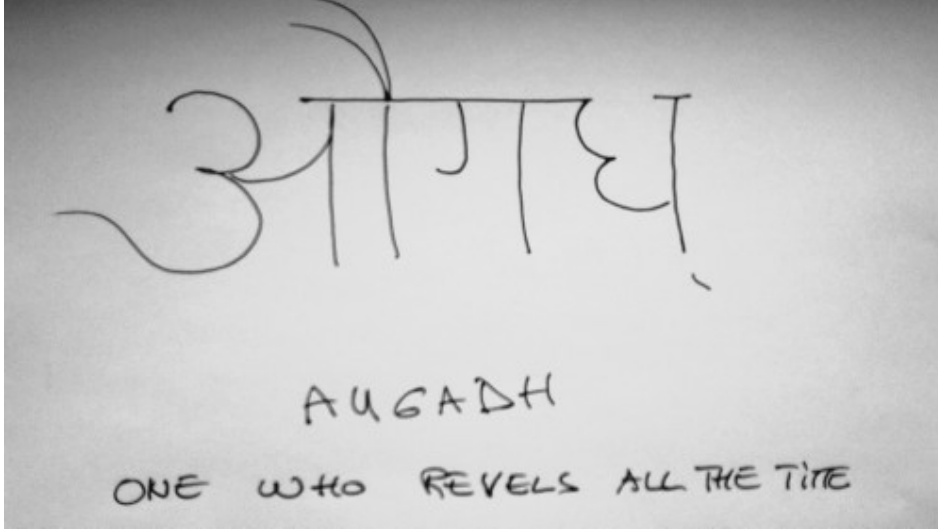 औगध्
AUGADH
ONE WHO REVELS ALL THE TIME